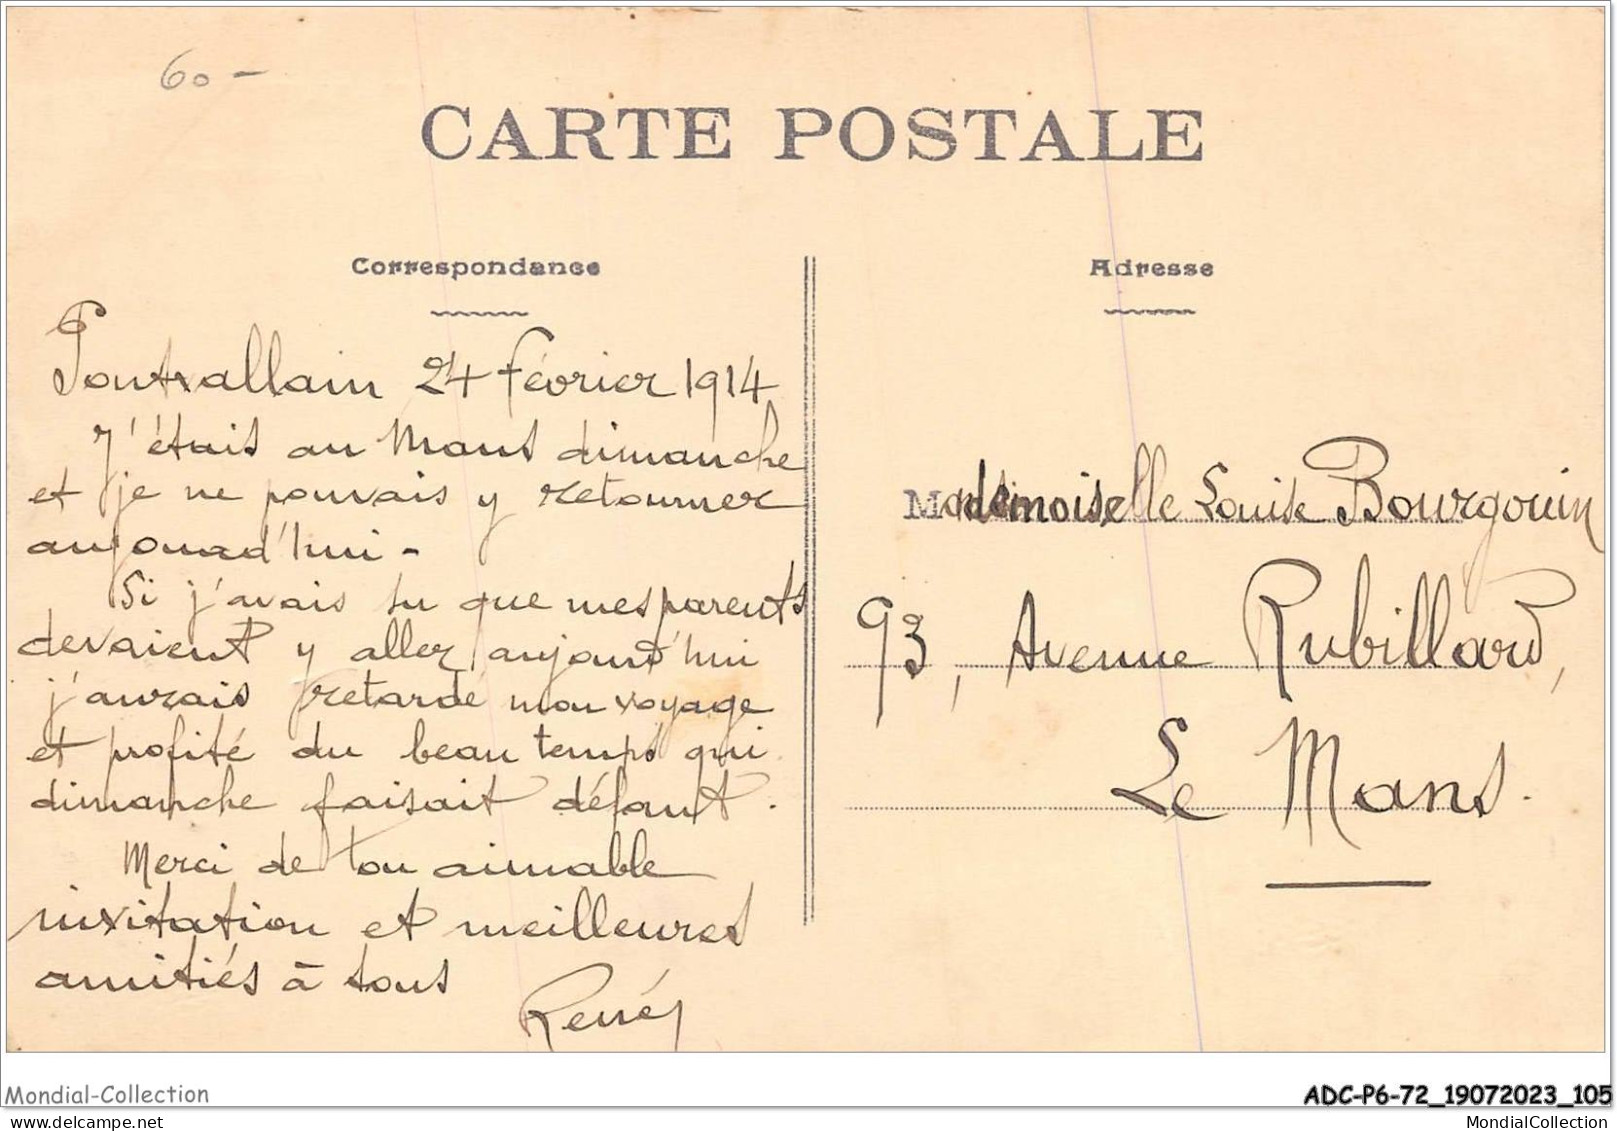 60 -
CARTE POSTALE
Correspondance
Adresse
Pontvallain 24 février 1914
J'étais au Mans dimanche
et je ne pouvais y retourner
aujourd'hui -
Si j'avais su que mes parents
devaient y aller aujourd'hui
j'aurais retardé mon voyage
et profité du beau temps qui
dimanche faisait défaut.
Merci de ton aimable
invitation et meilleures
amitiés à tous
René
Mademoiselle Louise Bourgouin
93, Avenue Rubillard,
Le Mans.
Mondial-Collection
ADC-P6-72_19072023_105
MondialCollection